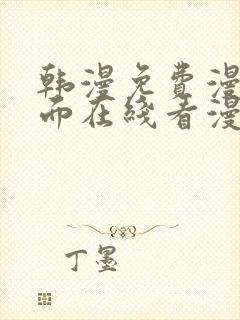 韩漫免费漫
而在线看漫
丁墨